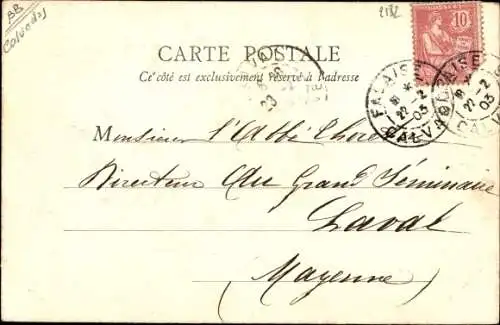 BB
Calvados
2132
10
CARTE POSTALE
Ce côté est exclusivement réservé à l'adresse
LAVAL
23
FALAISE
22-2
03
CALVADOS
FALAISE
22-2
03
Monsieur l'Abbé
Directeur Au Grand Séminaire
Laval
Mayenne)